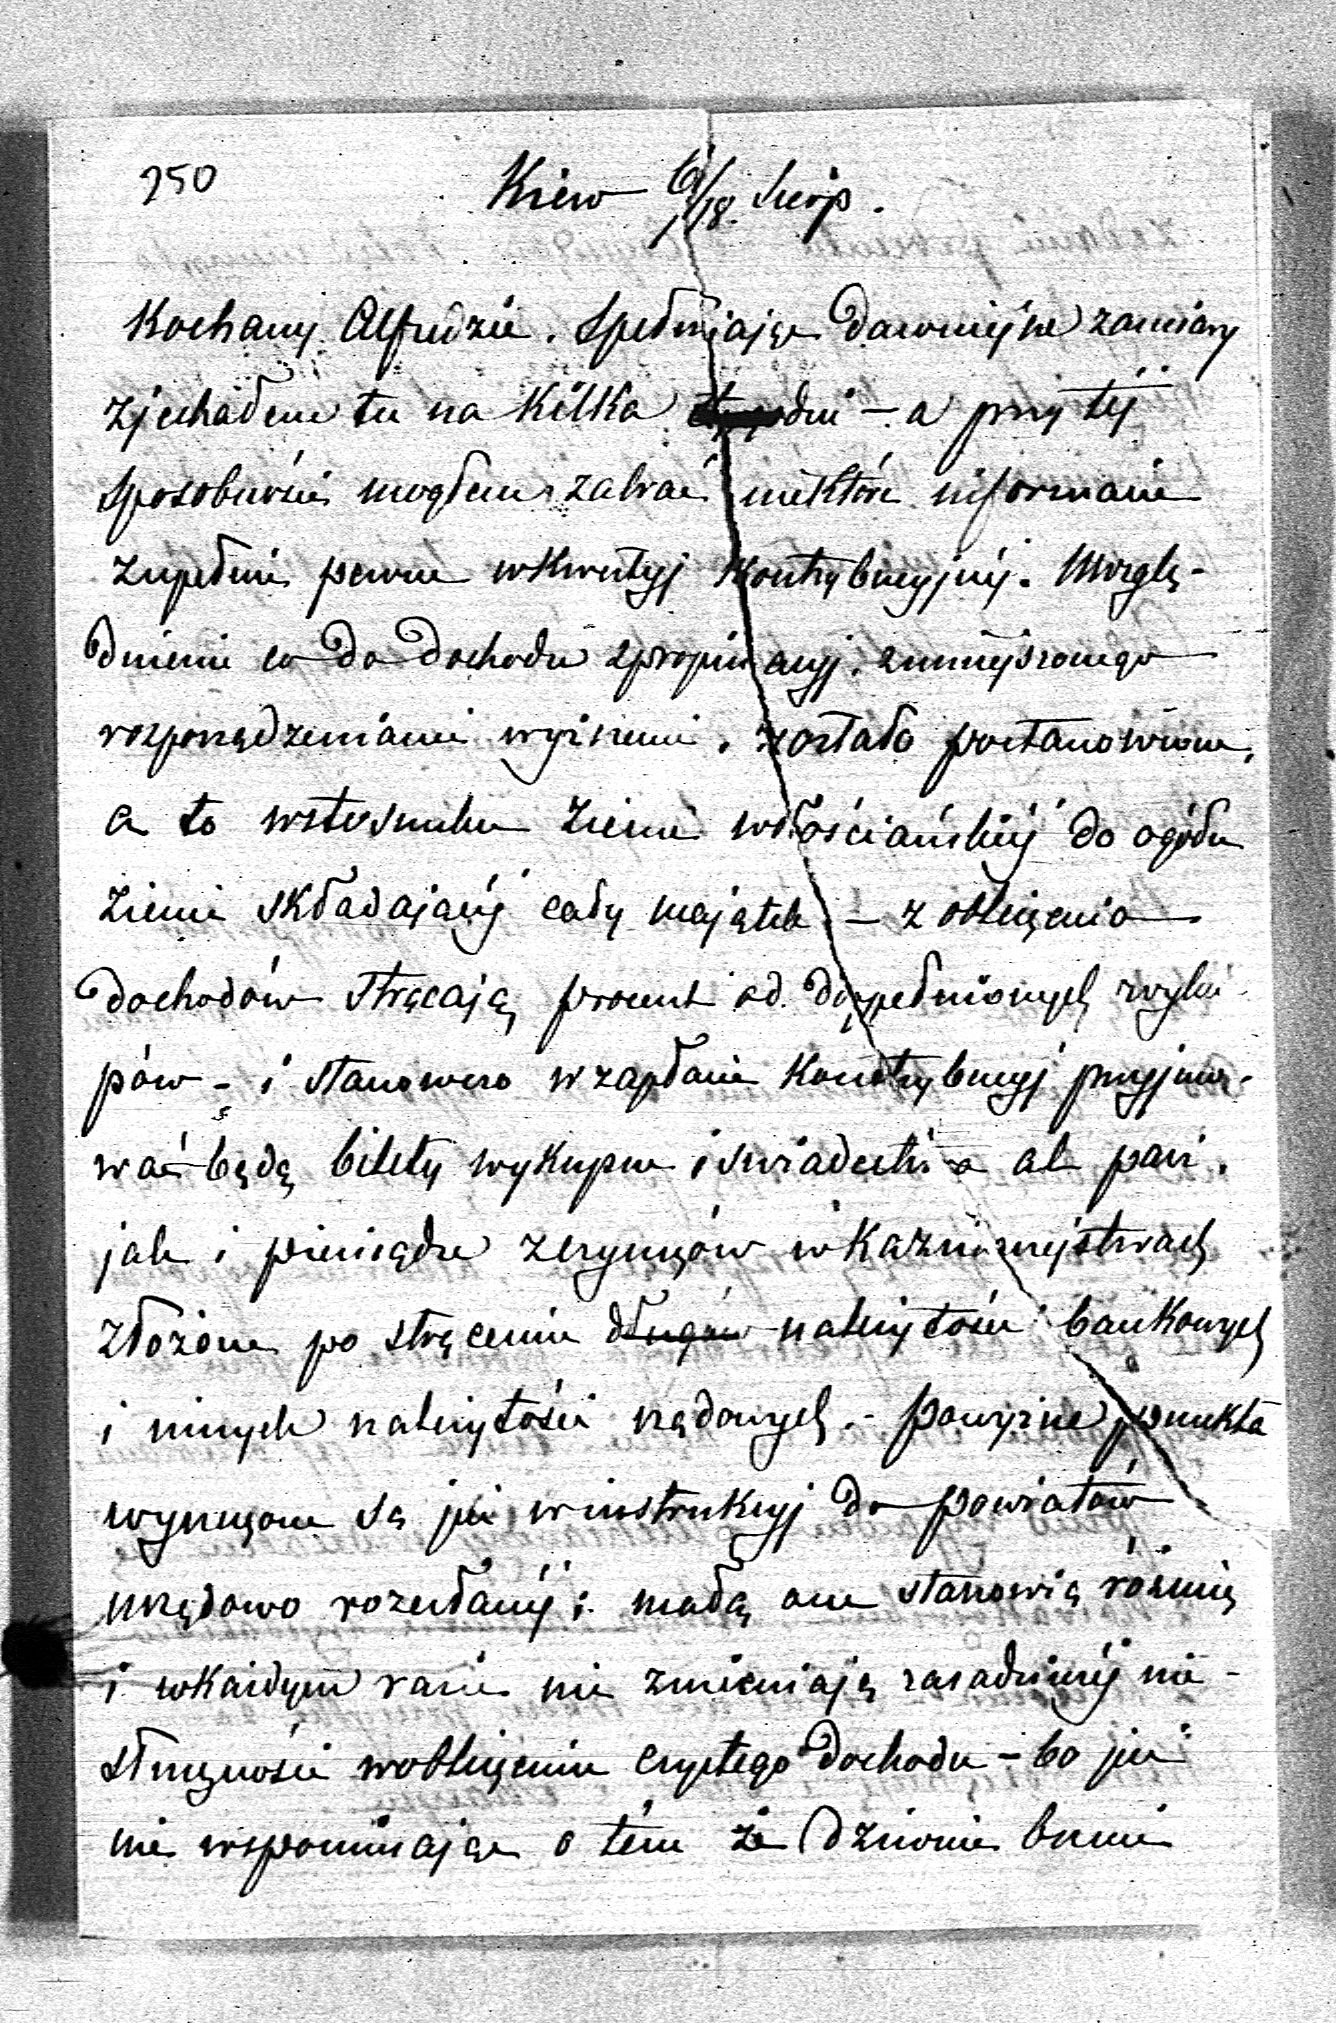 250
Kiew 6/18 Sierp.
Kochany Alfredzie. Spełniając dawniejsze zamiary
zjechałem tu na kilka dni – a przy téj
sposobności mogłem zabrać niektóre informacie
zupełnie pewne w kwestyj kontrybucyjnéj. Uwzglę-
dnienie co do dochodu z propinacyj zmniejszonego
rozporządzeniami wyższemi, zostało postanowione,
a to w stosunku ziemi włościańskiéj do ogółu
ziemi składającéj cały majątek – z obliczenia
dochodów strącają procent od dopełnionych wyku-
pów – i stanowczo w zapłacie kontrybucyj przyjmo-
wać będą bilety wykupne i świadectwa al pari,
jak i pieniądze z czynszów w kaznaczejstwach
złożone po strąceniu długów należytości bankowych
i innych należytości rządowych. – Powyższe punkta
wyrażone są już w instrukcyj do powiatów
urzędowo rozesłanéj; małą one stanowią różnicę
i w każdym razie nie zmieniają zasadniczéj nie-
słuszności w obliczeniu czystego dochodu – bo już
nie wspominając o tém że dziwnie